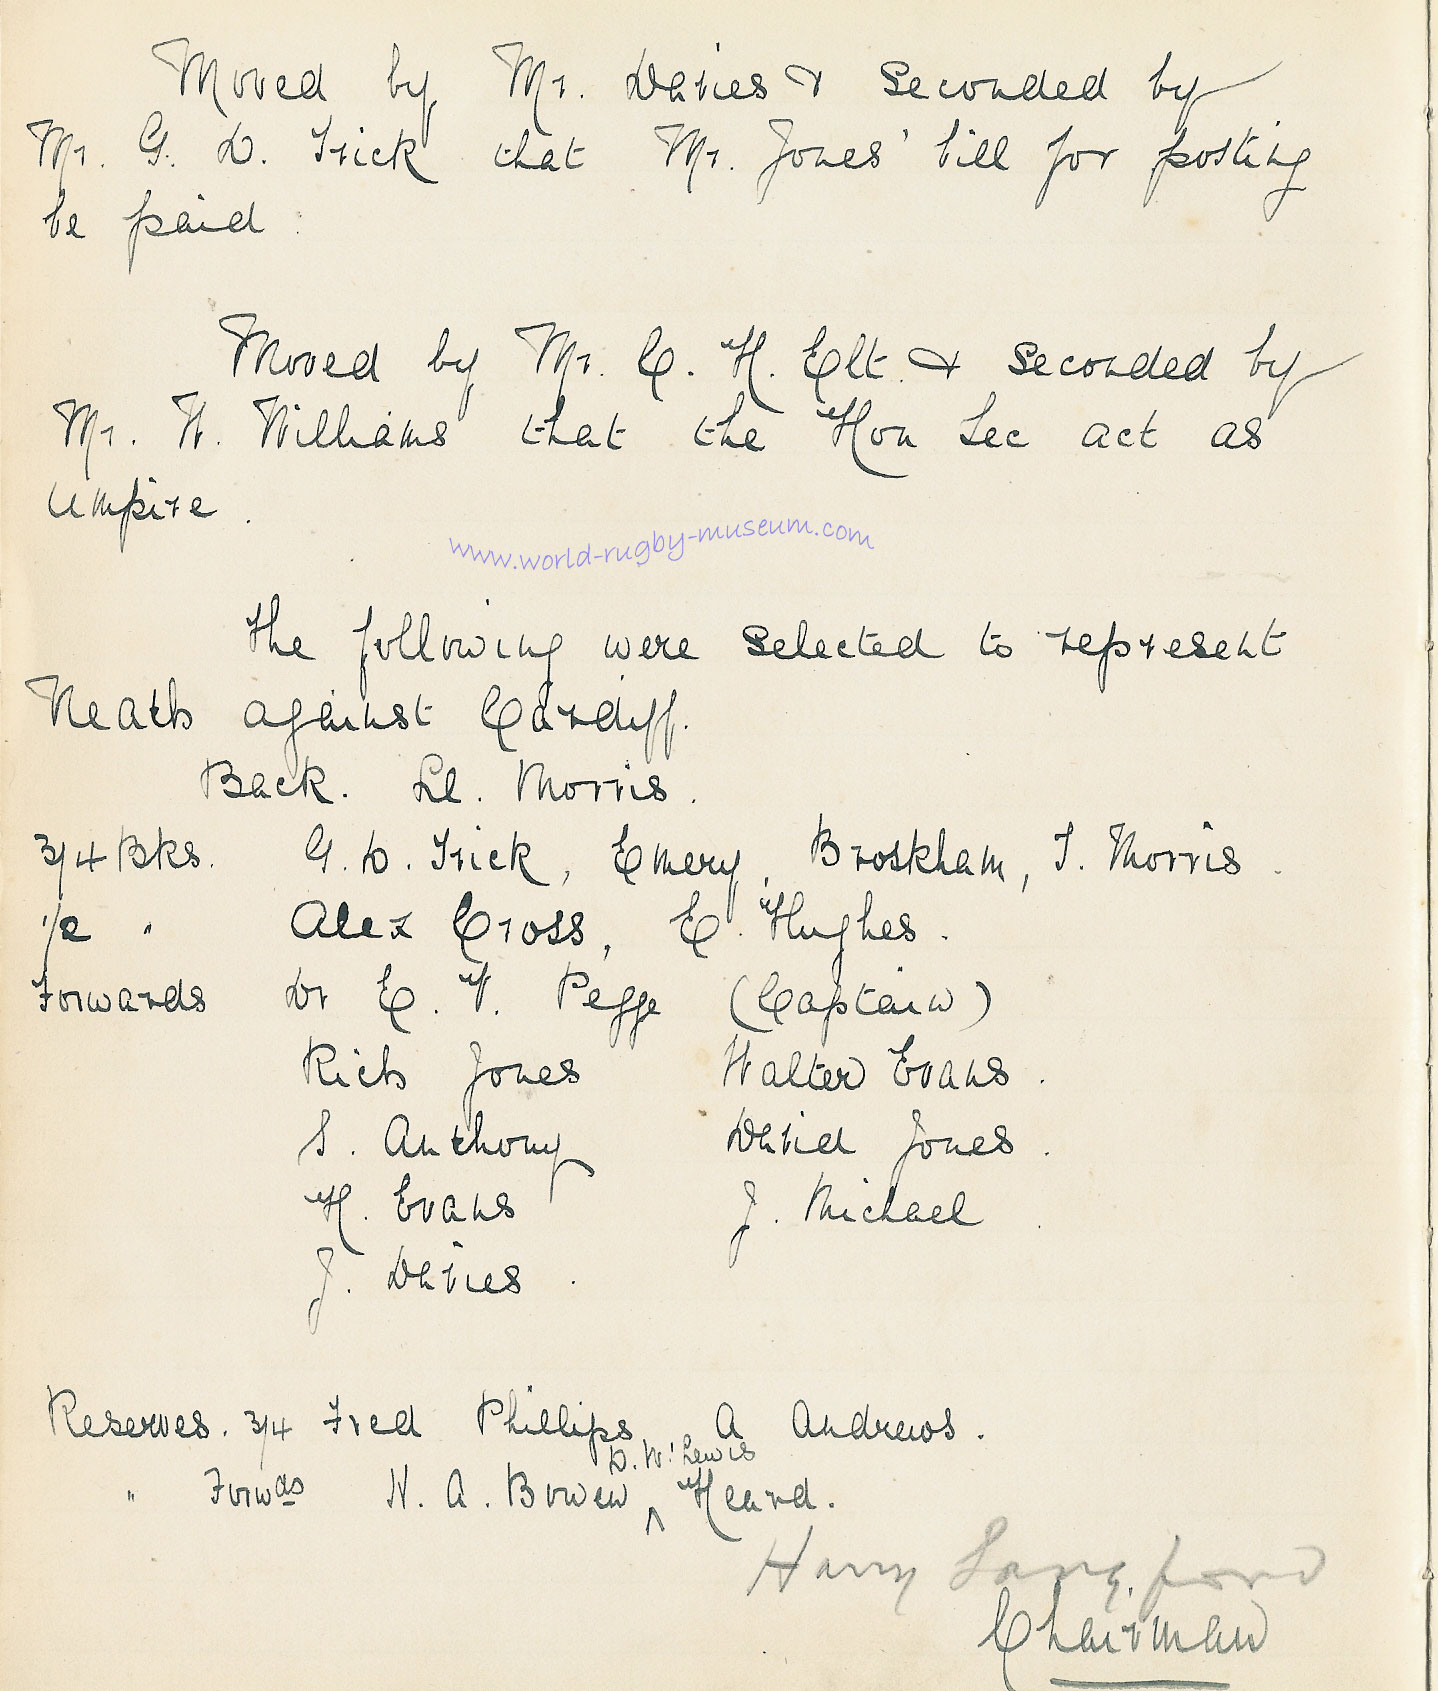 Moved by Mr. Davies & Seconded by
Mr. G. D. Trick that Mr. Jones' bill for posting
be paid.
Moved by Mr. C. H. Elt. & Seconded by
Mr. W. Williams that the Hon Sec act as
Umpire.
www.world-rugby-museum.com
The following were selected to represent
Neath against Cardiff.
Back. Ll. Morris.
3/4 Bks. G. D. Trick, Emery, Broskham, T. Morris.
1/2 " Alex Cross, E. Hughes.
Forwards Dr E. V. Pegge (Captain)
Rich Jones Walter Evans.
S. Anthony David Jones.
H. Evans J. Michael
J. Davies.
Reserves. 3/4 Fred Phillips, A Andrews.
D. W. Lewis
" Forwds W. A. Bowen ^ Heard.
Harry Langford
Chairman